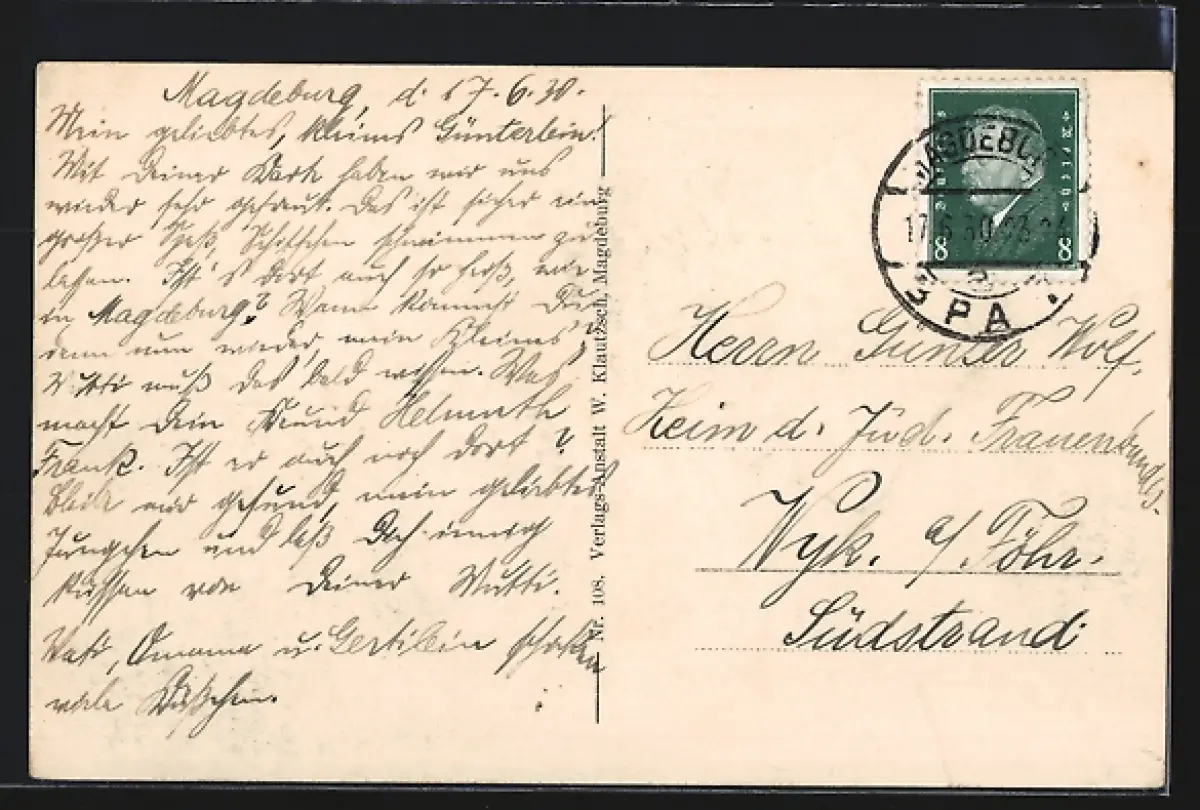 Magdeburg, d. 17.6.30.
Mein geliebtes, kleines Günterlein!
Mit Deiner Karte haben wir uns
wieder sehr gefreut. Das ist sicher ein
großer Spaß, Schiffchen schwimmen zu
lassen. Ist's dort auch so heiß, wie
in Magdeburg? Wann kommst Du
denn nun wieder, mein Kleines?
Mutti muß das bald wissen. Was
macht Dein Freund Helmuth
Frank. Ist er auch noch dort?
Bleib mir gesund, mein geliebtes
Jungchen und laß Dich innig
küssen von Deiner Mutti.
Vati, Omama u. Gertilein schicken
viele Küßchen.
Nr. 108. Verlags-Anstalt W. Klautzsch, Magdeburg
MAGDEBURG
17.6.30
SPA
8 8
Herrn Günter Wolf,
Heim d. Jüd. Frauenbundes.
Wyk. a/ Föhr.
Südstrand